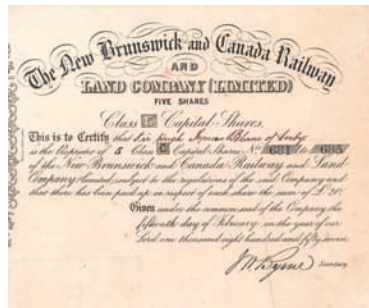 The New Brunswick and Canada Railway
AND
LAND COMPANY (LIMITED)
FIVE SHARES
Class C Capital Shares.
This is to Certify that Sir
is the Proprietor of 5 Class C Capital Shares, No. 681 to 685
of the New Brunswick and Canada Railway and Land
Company Limited, subject to the regulations of the said Company and
that there has been paid up in respect of each share the sum of £ 20
Given under the common seal of the Company, the
fifteenth day of February in the year of our
Lord one thousand eight hundred and fifty seven
Secretary